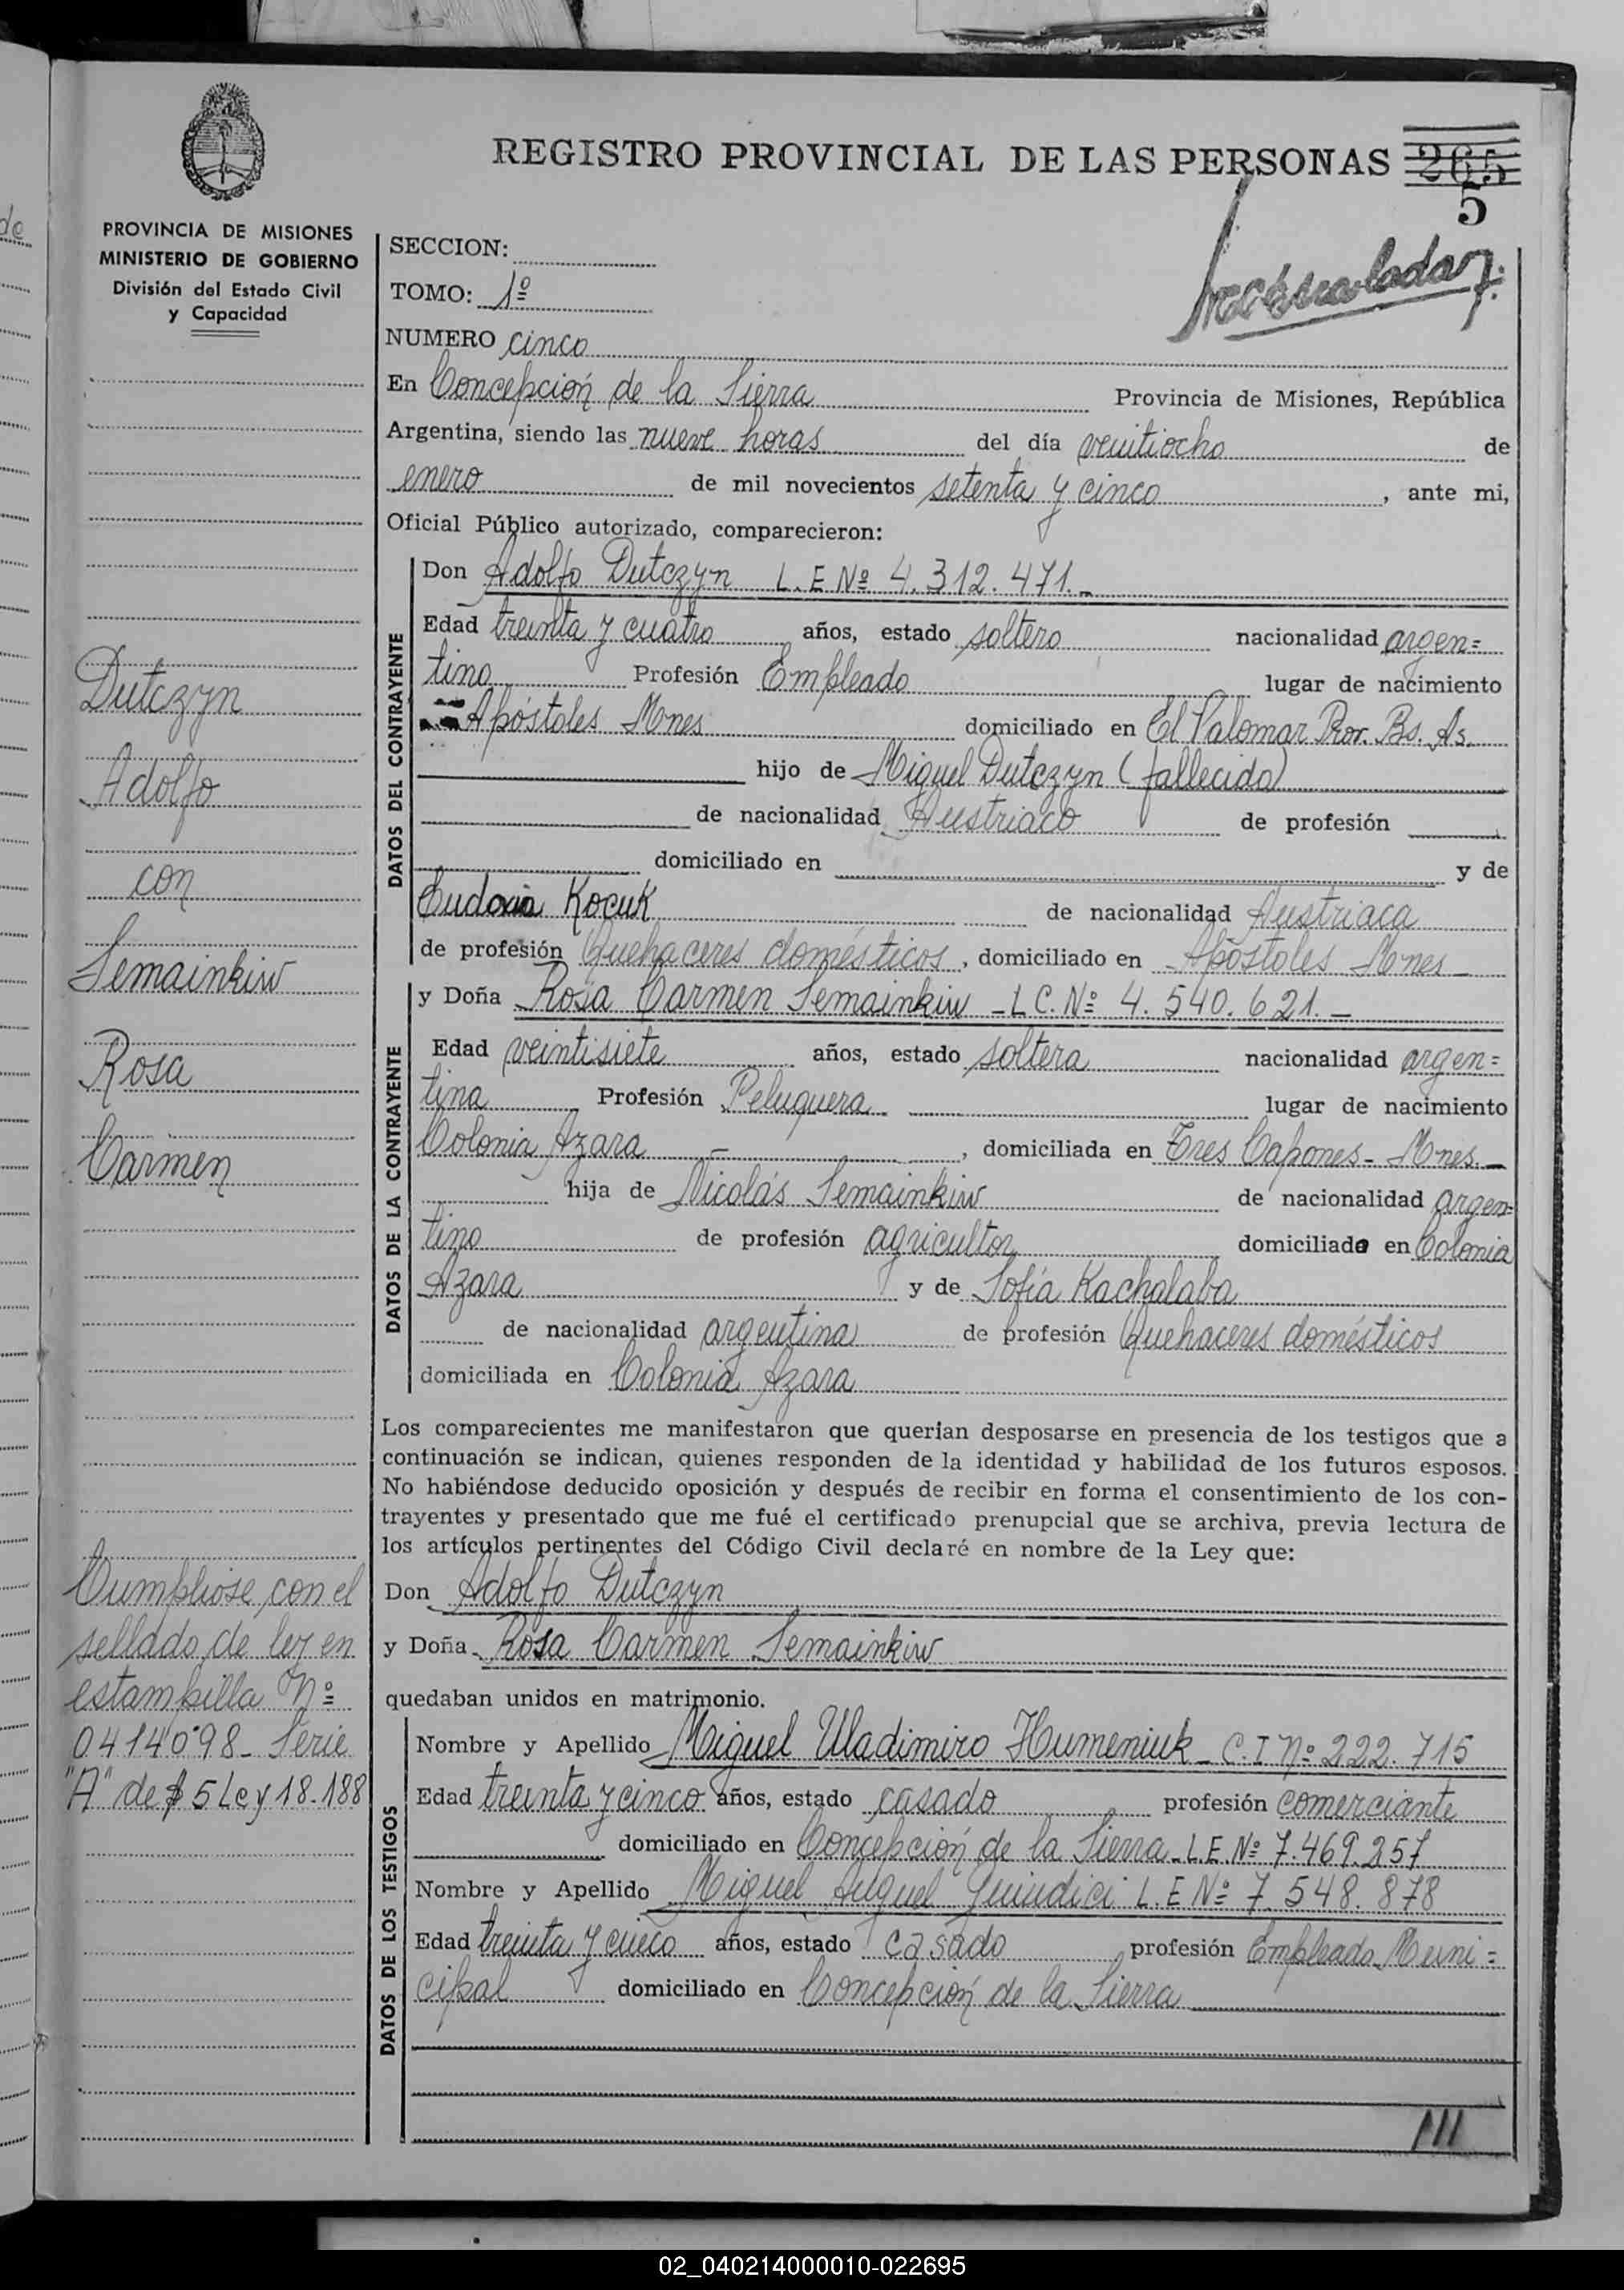 REGISTRO PROVINCIAL DE LAS PERSONAS 265
5
PROVINCIA DE MISIONES
MINISTERIO DE GOBIERNO
División del Estado Civil
y Capacidad
SECCION:
TOMO: 1º
NUMERO cinco
En Concepción de la Sierra Provincia de Misiones, República
Argentina, siendo las nueve horas del día veintiocho de
enero de mil novecientos setenta y cinco, ante mi,
Oficial Público autorizado, comparecieron:
DATOS DEL CONTRAYENTE
Don Adolfo Dutczyn L.E Nº 4.312.471.-
Edad treinta y cuatro años, estado soltero nacionalidad argen=
tino Profesión Empleado lugar de nacimiento
Apóstoles Mnes domiciliado en El Palomar Prov. Bs. As.
hijo de Miguel Dutczyn (fallecido)
de nacionalidad Austriaco de profesión
domiciliado en y de
Eudoxia Kocuk de nacionalidad Austriaca
de profesión Quehaceres domésticos, domiciliado en Apóstoles Mnes
DATOS DE LA CONTRAYENTE
y Doña Rosa Carmen Semainkiw - L C. Nº 4.540.621.-
Edad veintisiete años, estado soltera nacionalidad argen=
tina Profesión Peluquera lugar de nacimiento
Colonia Azara -, domiciliada en Tres Capones - Mnes.-
hija de Nicolás Semainkiw de nacionalidad argen=
tino de profesión agricultor domiciliado en Colonia
Azara y de Sofía Kachalaba
de nacionalidad argentina de profesión Quehaceres domésticos
domiciliada en Colonia Azara
Los comparecientes me manifestaron que querían desposarse en presencia de los testigos que a
continuación se indican, quienes responden de la identidad y habilidad de los futuros esposos.
No habiéndose deducido oposición y después de recibir en forma el consentimiento de los con-
trayentes y presentado que me fué el certificado prenupcial que se archiva, previa lectura de
los artículos pertinentes del Código Civil declaré en nombre de la Ley que:
Don Adolfo Dutczyn
y Doña Rosa Carmen Semainkiw
quedaban unidos en matrimonio.
DATOS DE LOS TESTIGOS
Nombre y Apellido Miguel Uladimiro Humeniuk - C.I Nº 222.715
Edad treinta y cinco años, estado casado profesión comerciante
domiciliado en Concepción de la Sierra - L.E. Nº 7.469.257
Nombre y Apellido Miguel Angel Guindici L.E Nº 7.548.878
Edad treinta y cinco años, estado casado profesión Empleado Muni=
cipal domiciliado en Concepción de la Sierra
///
Dutczyn
Adolfo
con
Semainkiw
Rosa
Carmen
Cumpliose con el
sellado de ley en
estampilla Nº
0414098 - Serie
"A" de $ 5 Ley 18.188
de
02_040214000010-022695